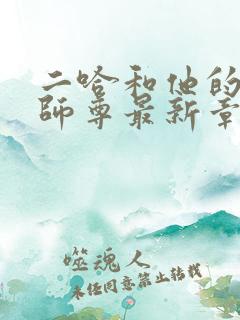 二哈和他的
師尊最新章
噬魂人
未经同意禁止转载